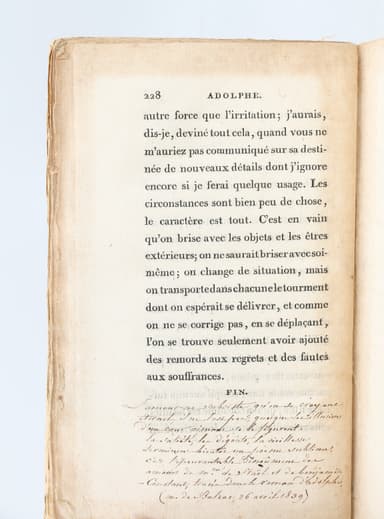 228 ADOLPHE.
autre force que l'irritation; j'aurais,
dis-je, deviné tout cela, quand vous ne
m'auriez pas communiqué sur sa desti-
née de nouveaux détails dont j'ignore
encore si je ferai quelque usage. Les
circonstances sont bien peu de chose,
le caractère est tout. C'est en vain
qu'on brise avec les objets et les êtres
extérieurs; on ne saurait briser avec soi-
même; on change de situation, mais
on transporte dans chacune le tourment
dont on espérait se délivrer, et comme
on ne se corrige pas, en se déplaçant,
l'on se trouve seulement avoir ajouté
des remords aux regrets et des fautes
aux souffrances.
FIN.
L'amour ne
quelque
la satiété, le dégoût, la vieillesse
dénouement des
amours de Mme de Staël et de benjamin
Constant, dans le roman d'adolphe
(m. de Balzac, 26 avril 1839)